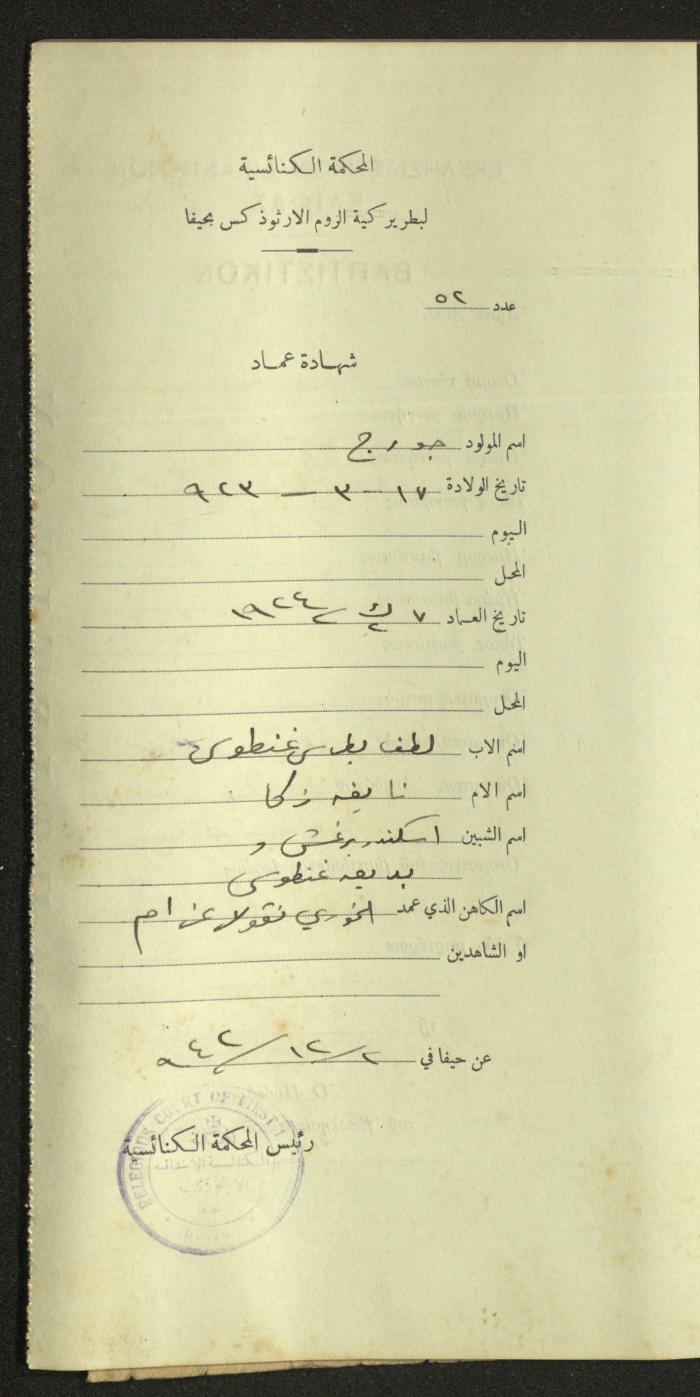 المحكمة الكنائسية
لبطريركية الروم الارثوذكس بحيفا
عدد ٥٢
شهادة عماد
اسم المولود جورج
تاريخ الولادة ١٧ - ٣ - ٩٢٣
اليوم
المحل
تاريخ العماد ٧ ك٢ ١٩٢٤
اليوم
المحل
اسم الاب لطف بطرس غنطوس
اسم الام نايفه زكا
اسم الشبين اسكندر غنش و
بديعه غنطوس
اسم الكاهن الذي عمد الخوري نقولا عزام
او الشاهدين
عن حيفا في ٢/١٢/٩٤٢
رئيس المحكمة الكنائسية
RELEGIOUS COURT OF FIRST